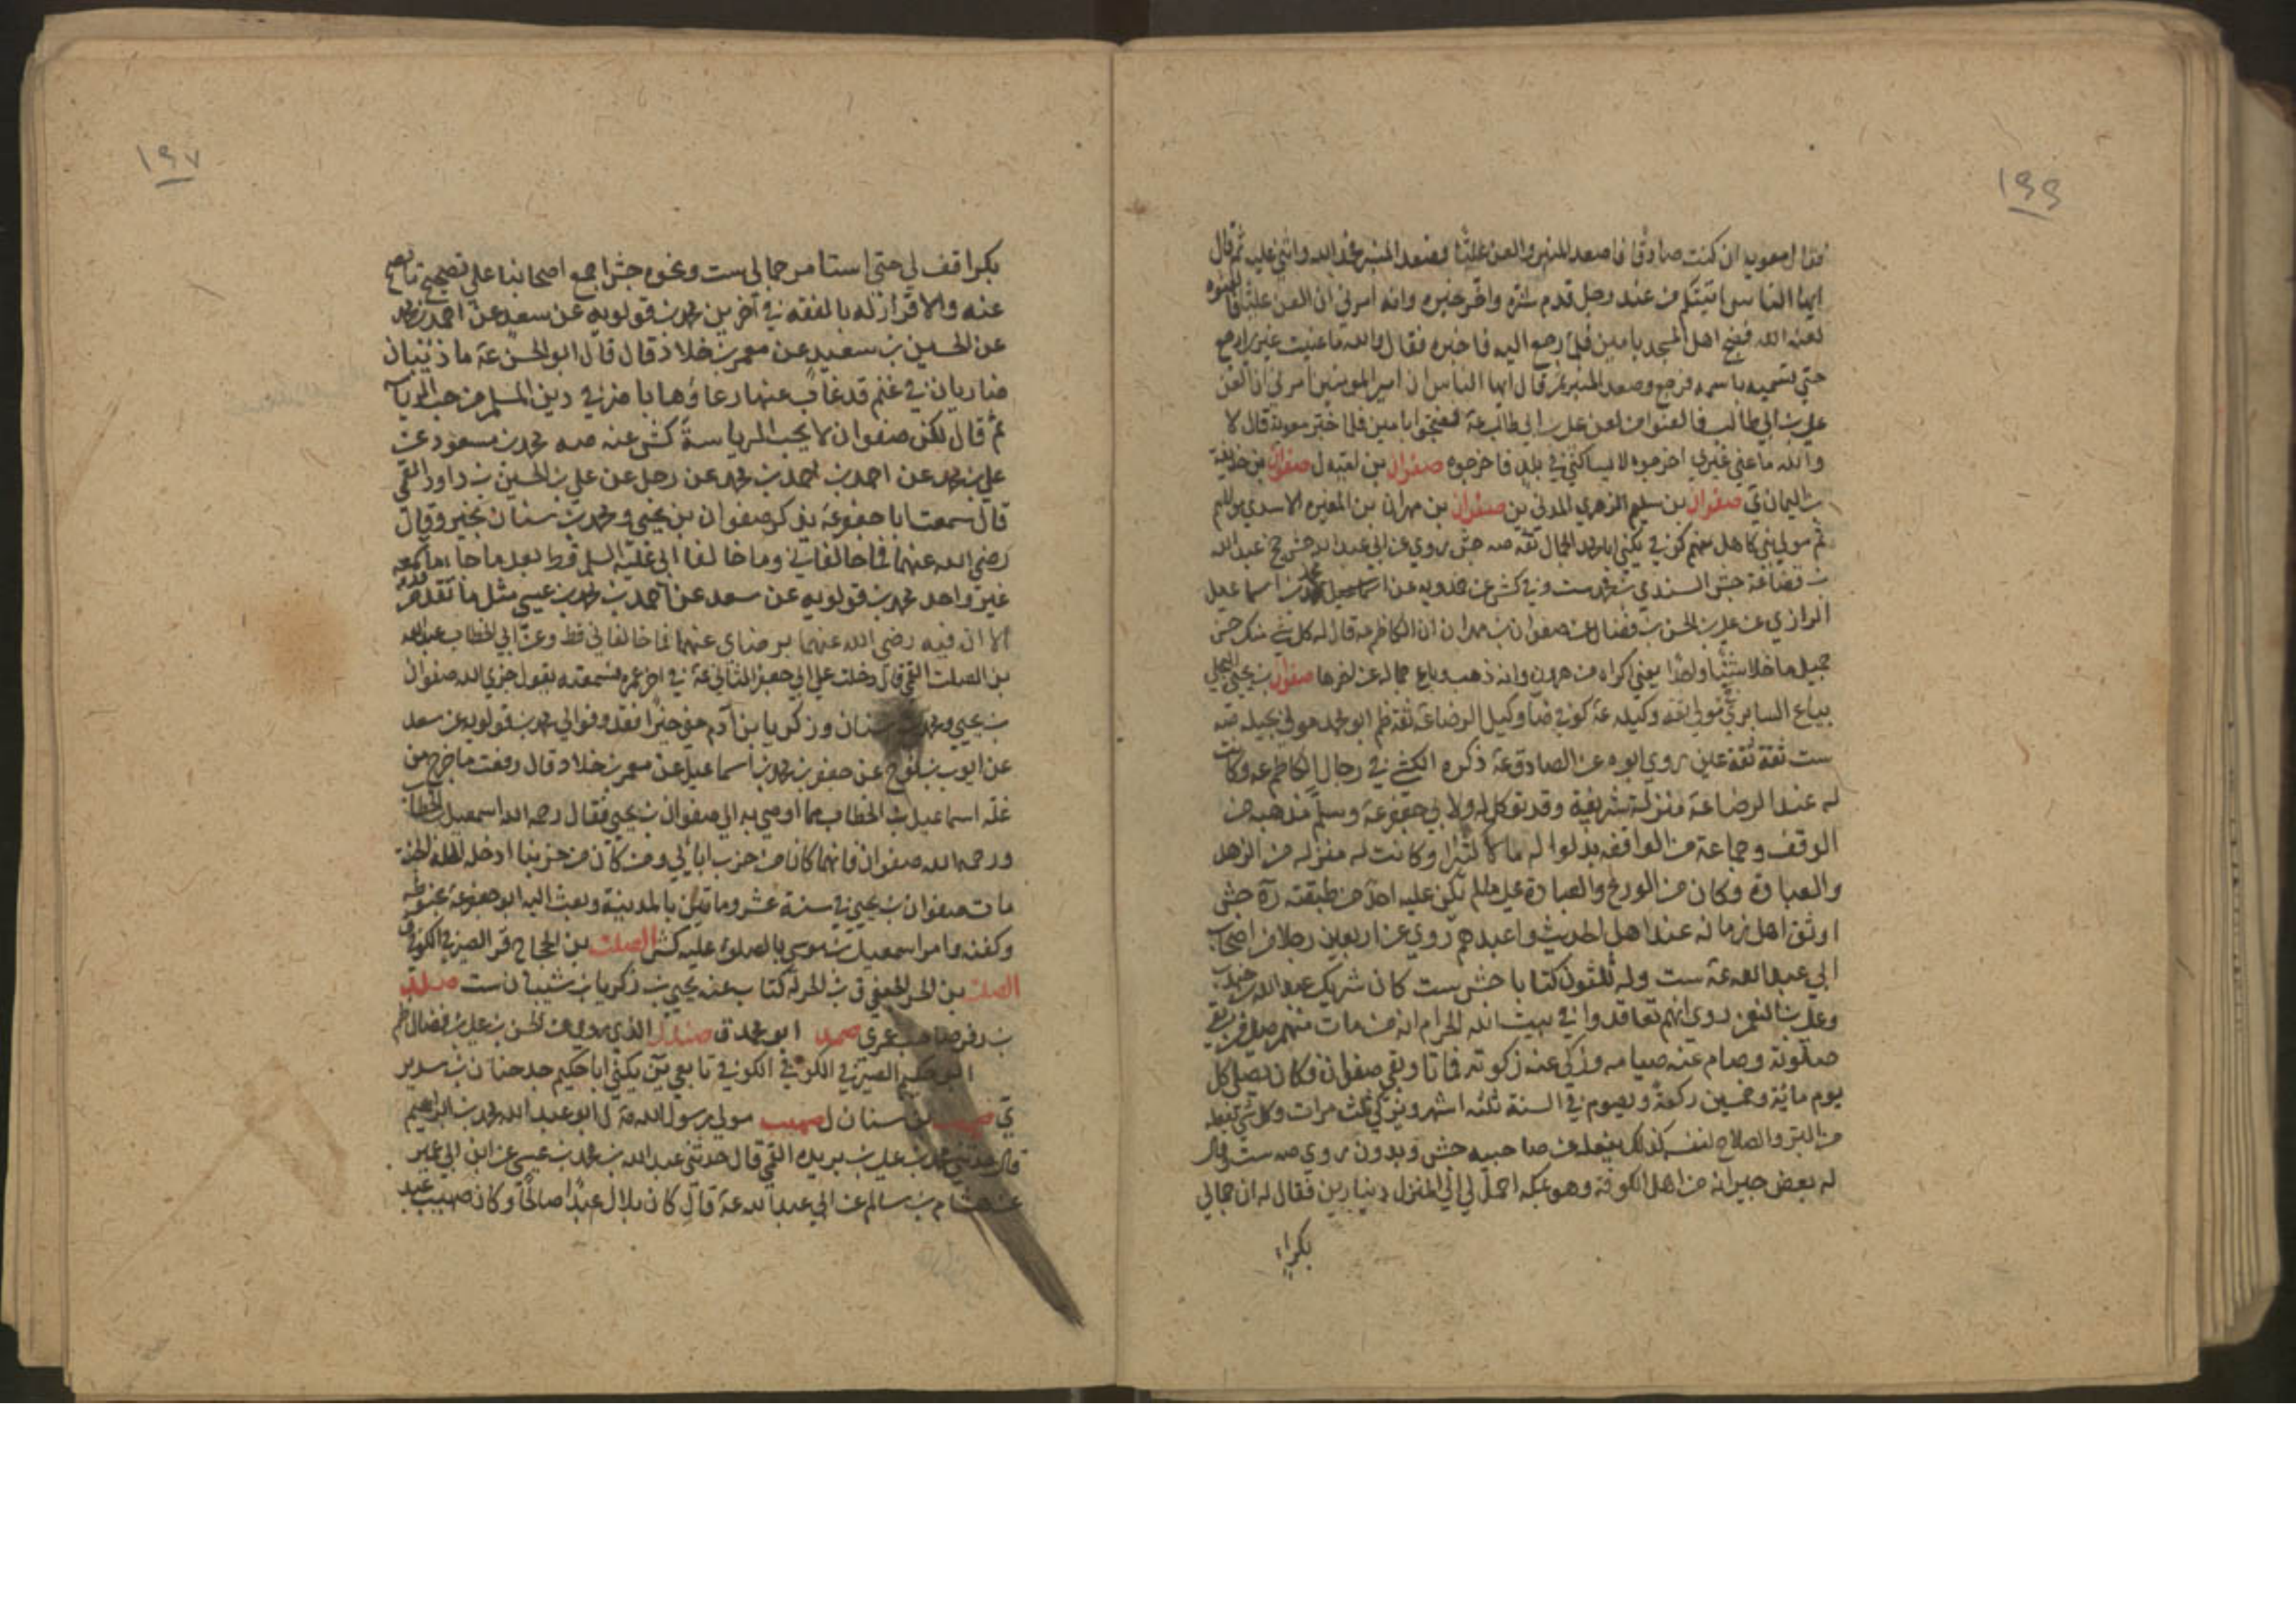 ١٩٩
فقال معويه ان كنت صادقا فاصعد المنبر والعن عليا فصعد المنبر فحمد الله واثنى عليه ثم قال
ايها الناس اتيتكم من عند رجل قدم شره واخر خيره وانه امرني ان العن عليا فالعنوه
لعنه الله فضج اهل المسجد بامين فلما رجع اليه فاخبره فقال والله ما عنيت غيري ارجع
حتى تسميه باسمه فرجع وصعد المنبر ثم قال ايها الناس ان امير المومنين امرني ان العن
علي بن ابي طالب فالعنوا من لعن علي بن ابي طالب عة فضجوا بامين فلما خبر معوية قال لا
والله ما عنى غيري اخرجوه لا يساكنني في بلد فاخرجوه صفوان بن صفوان بن حذيفة
بن اليمان ي صفوان بن سليم الزهري المدني ين صفوان بن مهران بن المغيره الاسدي مولاهم
ثم مولى بني كاهل منهم كوفي يكنى ابا محمد الجمال ثقه صه جش روى عن ابي عبد الله
بن قضاعة جش السندي بن محمد ست وفي كش عن حمدويه عن بن اسماعيل
الرازي عن علي بن الحسن بن فضال عن صفوان بن مهران ان الكاظم عه قال له كل شي منك حسن
جميل ما خلا شيئا واحدا يعني اكراه من هرون وانه ذهب وباع جماله عن اخرها صفوان بن يحيى البجلي
بياع السابري مولى ثقه وكيله عة كوفي ضا وكيل الرضا عة ثقة ظم ابو محمد مولى بجيله صه
ست ثقة ثقة عين روى ابوه عن الصادق عة ذكره الكشي في رجال الكاظم عه وكانت
له عند الرضا عة منزلة شريفة وقد توكل له ولابي جعفر عة وسلم مذهبه من
الوقف وجماعة من الواقفه بذلوا له مالا كثيرا وكانت له منزله من الزهد
والعبادة وكان من الورع والعبادة على ما لم يكن عليه احد من طبقته ره جش
اوثق اهل زمانه عند اهل الحديث واعبدهم روى عن اربعين رجلا من اصحاب
ابي عبد الله عة ست وله ثلثون كتابا جش ست كان شريك عبد الله بن جندب
وعلي بن النعمن روى انهم تعاقدوا في بيت الله الحرام انه من مات منهم صلى من بقى
صلوته وصام عنه صيامه وزكى عنه زكوته فماتا وبقى صفوان وكان يصلي كل
يوم مائة وخمسين ركعة ويصوم في السنة ثلثه اشهر ويزكى ثلث مرات وكل شي يفعله
من البر والصلاح لنفسه كذلك يفعل عن صاحبيه جش وبدون روى صه ست وقال
له بعض جيرانه من اهل الكوفة وهو بمكه احمل لي الى المنزل دينارين فقال له ان جمالي
بكراء
١٩٧
بكرا قف لي حتى استامر جمالي ست ونحوه جش اجمع اصحابنا على تصحيح ما يصح
عنه والاقرار له بالفقه في آخرين محمد بن قولويه عن سعد عن احمد بن محمد
عن الحسين بن سعيد عن معمر بن خلاد قال قال ابو الحسن عة ما ذئبان
ضاريان في غنم قد غاب عنها رعاؤها باضر في دين المسلم من حب الرياسه
ثم قال لكن صفوان لا يحب الرياسة كش عنه صه محمد بن مسعود عن
علي بن محمد عن احمد بن محمد عن رجل عن علي بن الحسين بن داود القمي
قال سمعت ابا جعفر عة يذكر صفوان بن يحيى ومحمد بن سنان بخير وقال
رضي الله عنهما فما خالفاني وما خالفا ابي عليه السلم قط بعد ما جا
غير واحد محمد بن قولويه عن سعد عن احمد بن محمد بن عيسى مثل ما تقدم
الا ان فيه رضي الله عنهما برضاي عنهما فما خالفاني قط وعن ابي طالب عبد الله
بن الصلت القمي قال دخلت على ابي جعفر الثاني عة في اخر عمره فسمعته يقول جزى الله صفوان
بن يحيى ومحمد بن سنان وزكريا بن آدم عني خيرا فقد وفوا لي محمد بن قولويه عن سعد
عن ايوب بن نوح عن جعفر بن محمد بن اسماعيل عن معمر بن خلاد قال رفعت ما خرج من
غله اسماعيل بن الخطاب مما اوصى به الى صفوان بن يحيى فقال رحم الله اسمعيل بن الخطاب
ورحم الله صفوان فانهما كانا من حزب ابائي ومن كان من حزبنا ادخله الله الجنة
مات صفوان بن يحيى في سنة عشر ومائتين بالمدينة وبعث اليه ابو جعفر عة بحنوطه
وكفنه وامر اسمعيل بن موسى بالصلوة عليه كش الصلت بن الحجاج قر الصيرفي الكوفي ق
الصلت بن الحر الجعفي ق بن الحر له كتاب عنه يحيى بن زكريا بن شيبان ست
بن زفر صاحب ابو محمد ق صندل الذي روى عن الحسن بن علي بن فضال ظم
الصيرفي الكوفي تابعي ين يكنى ابا حكيم جد حنان بن سدير
ي صهيب بن سنان ل صهيب مولى رسول الله صة ل ابو عبد الله محمد بن ابراهيم
قال حدثني محمد بن علي بن بريده القمي قال حدثني عبد الله بن محمد بن عيسى عن ابن ابي عمير
عن هشام بن سالم عن ابي عبد الله عة قال كان بلال عبدا صالحا وكان صهيب عبد